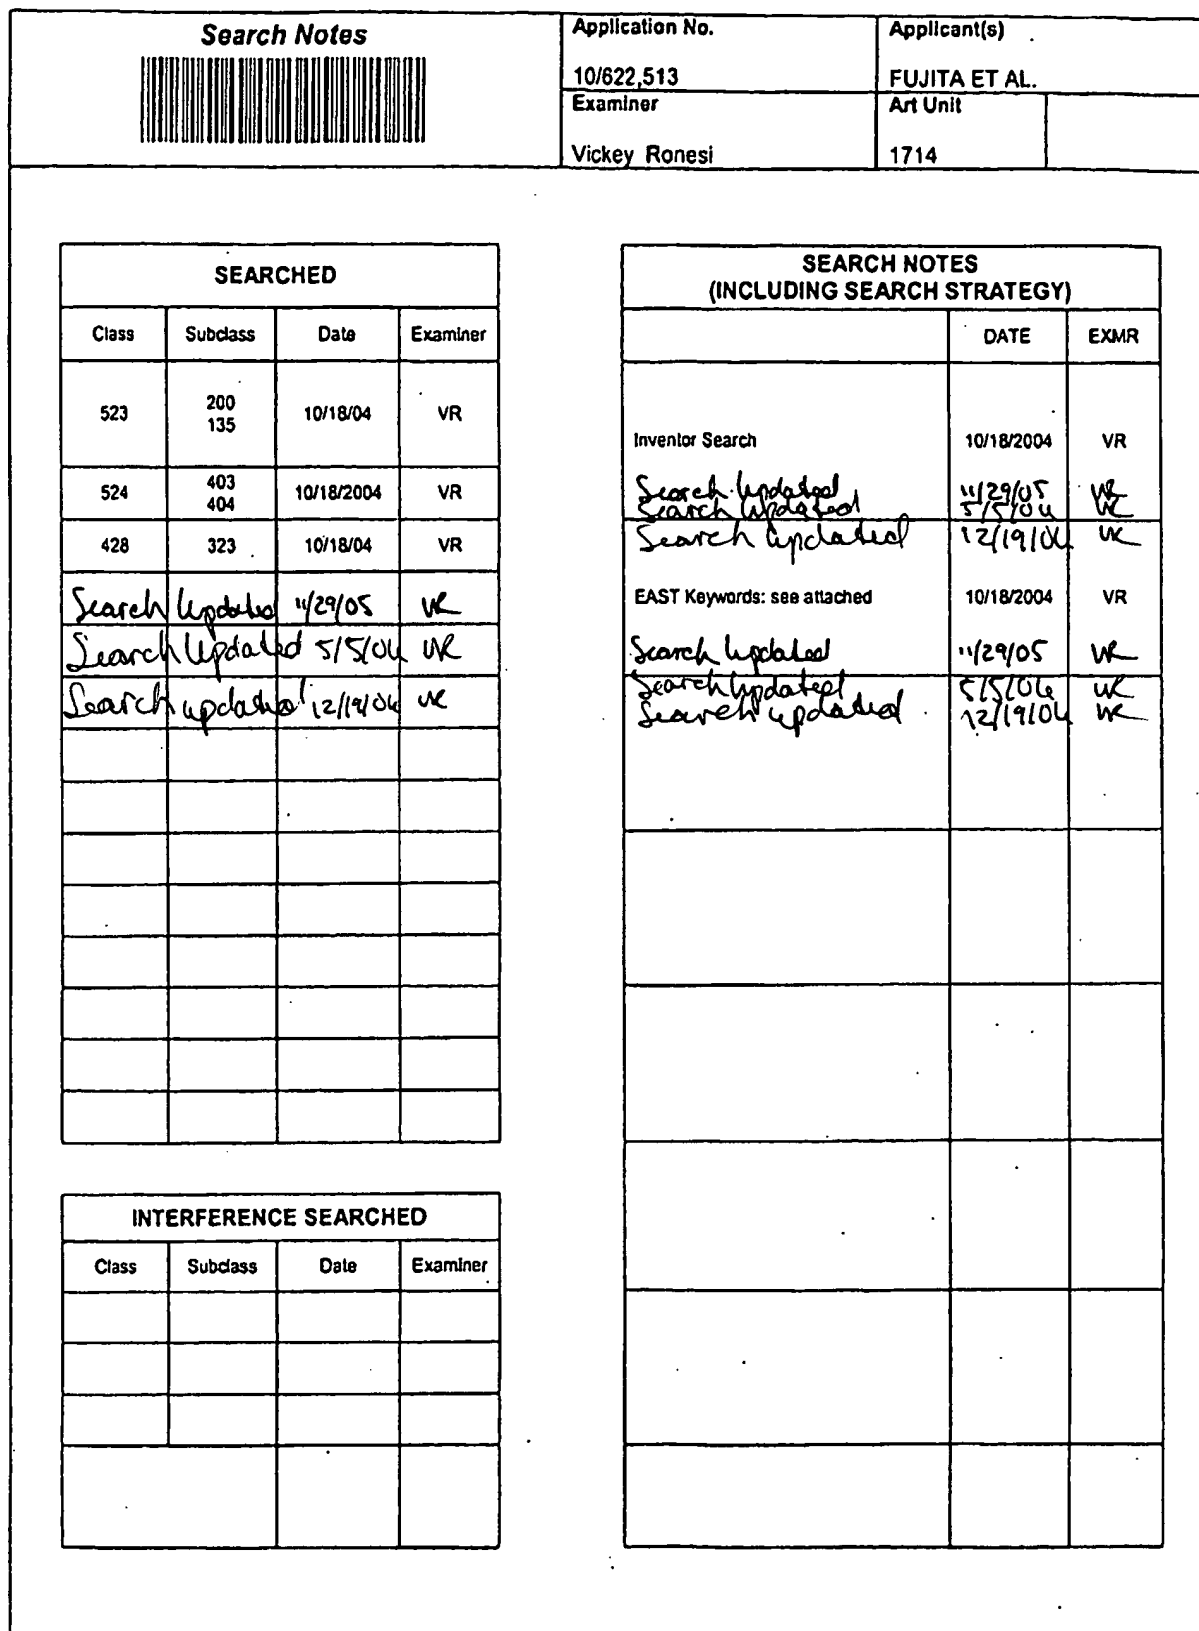 Search Notes
Application No.
Applicant(s)
10/622,513
FUJITA ET AL.
Examiner
Art Unit
Vickey Ronesi
1714
SEARCHED
Class Subclass Date Examiner
523 200 135 10/18/04 VR
524 403 404 10/18/2004 VR
428 323 10/18/04 VR
Search Updated 11/29/05 VR
Search Updated 5/5/06 VR
Search updated 12/19/06 VR
INTERFERENCE SEARCHED
Class Subclass Date Examiner
SEARCH NOTES
(INCLUDING SEARCH STRATEGY)
DATE EXMR
Inventor Search 10/18/2004 VR
Search Updated 11/29/05 VR
Search Updated 5/5/06 VR
Search updated 12/19/06 VR
EAST Keywords: see attached 10/18/2004 VR
Search Updated 11/29/05 VR
Search Updated 5/5/06 VR
Search updated 12/19/06 VR